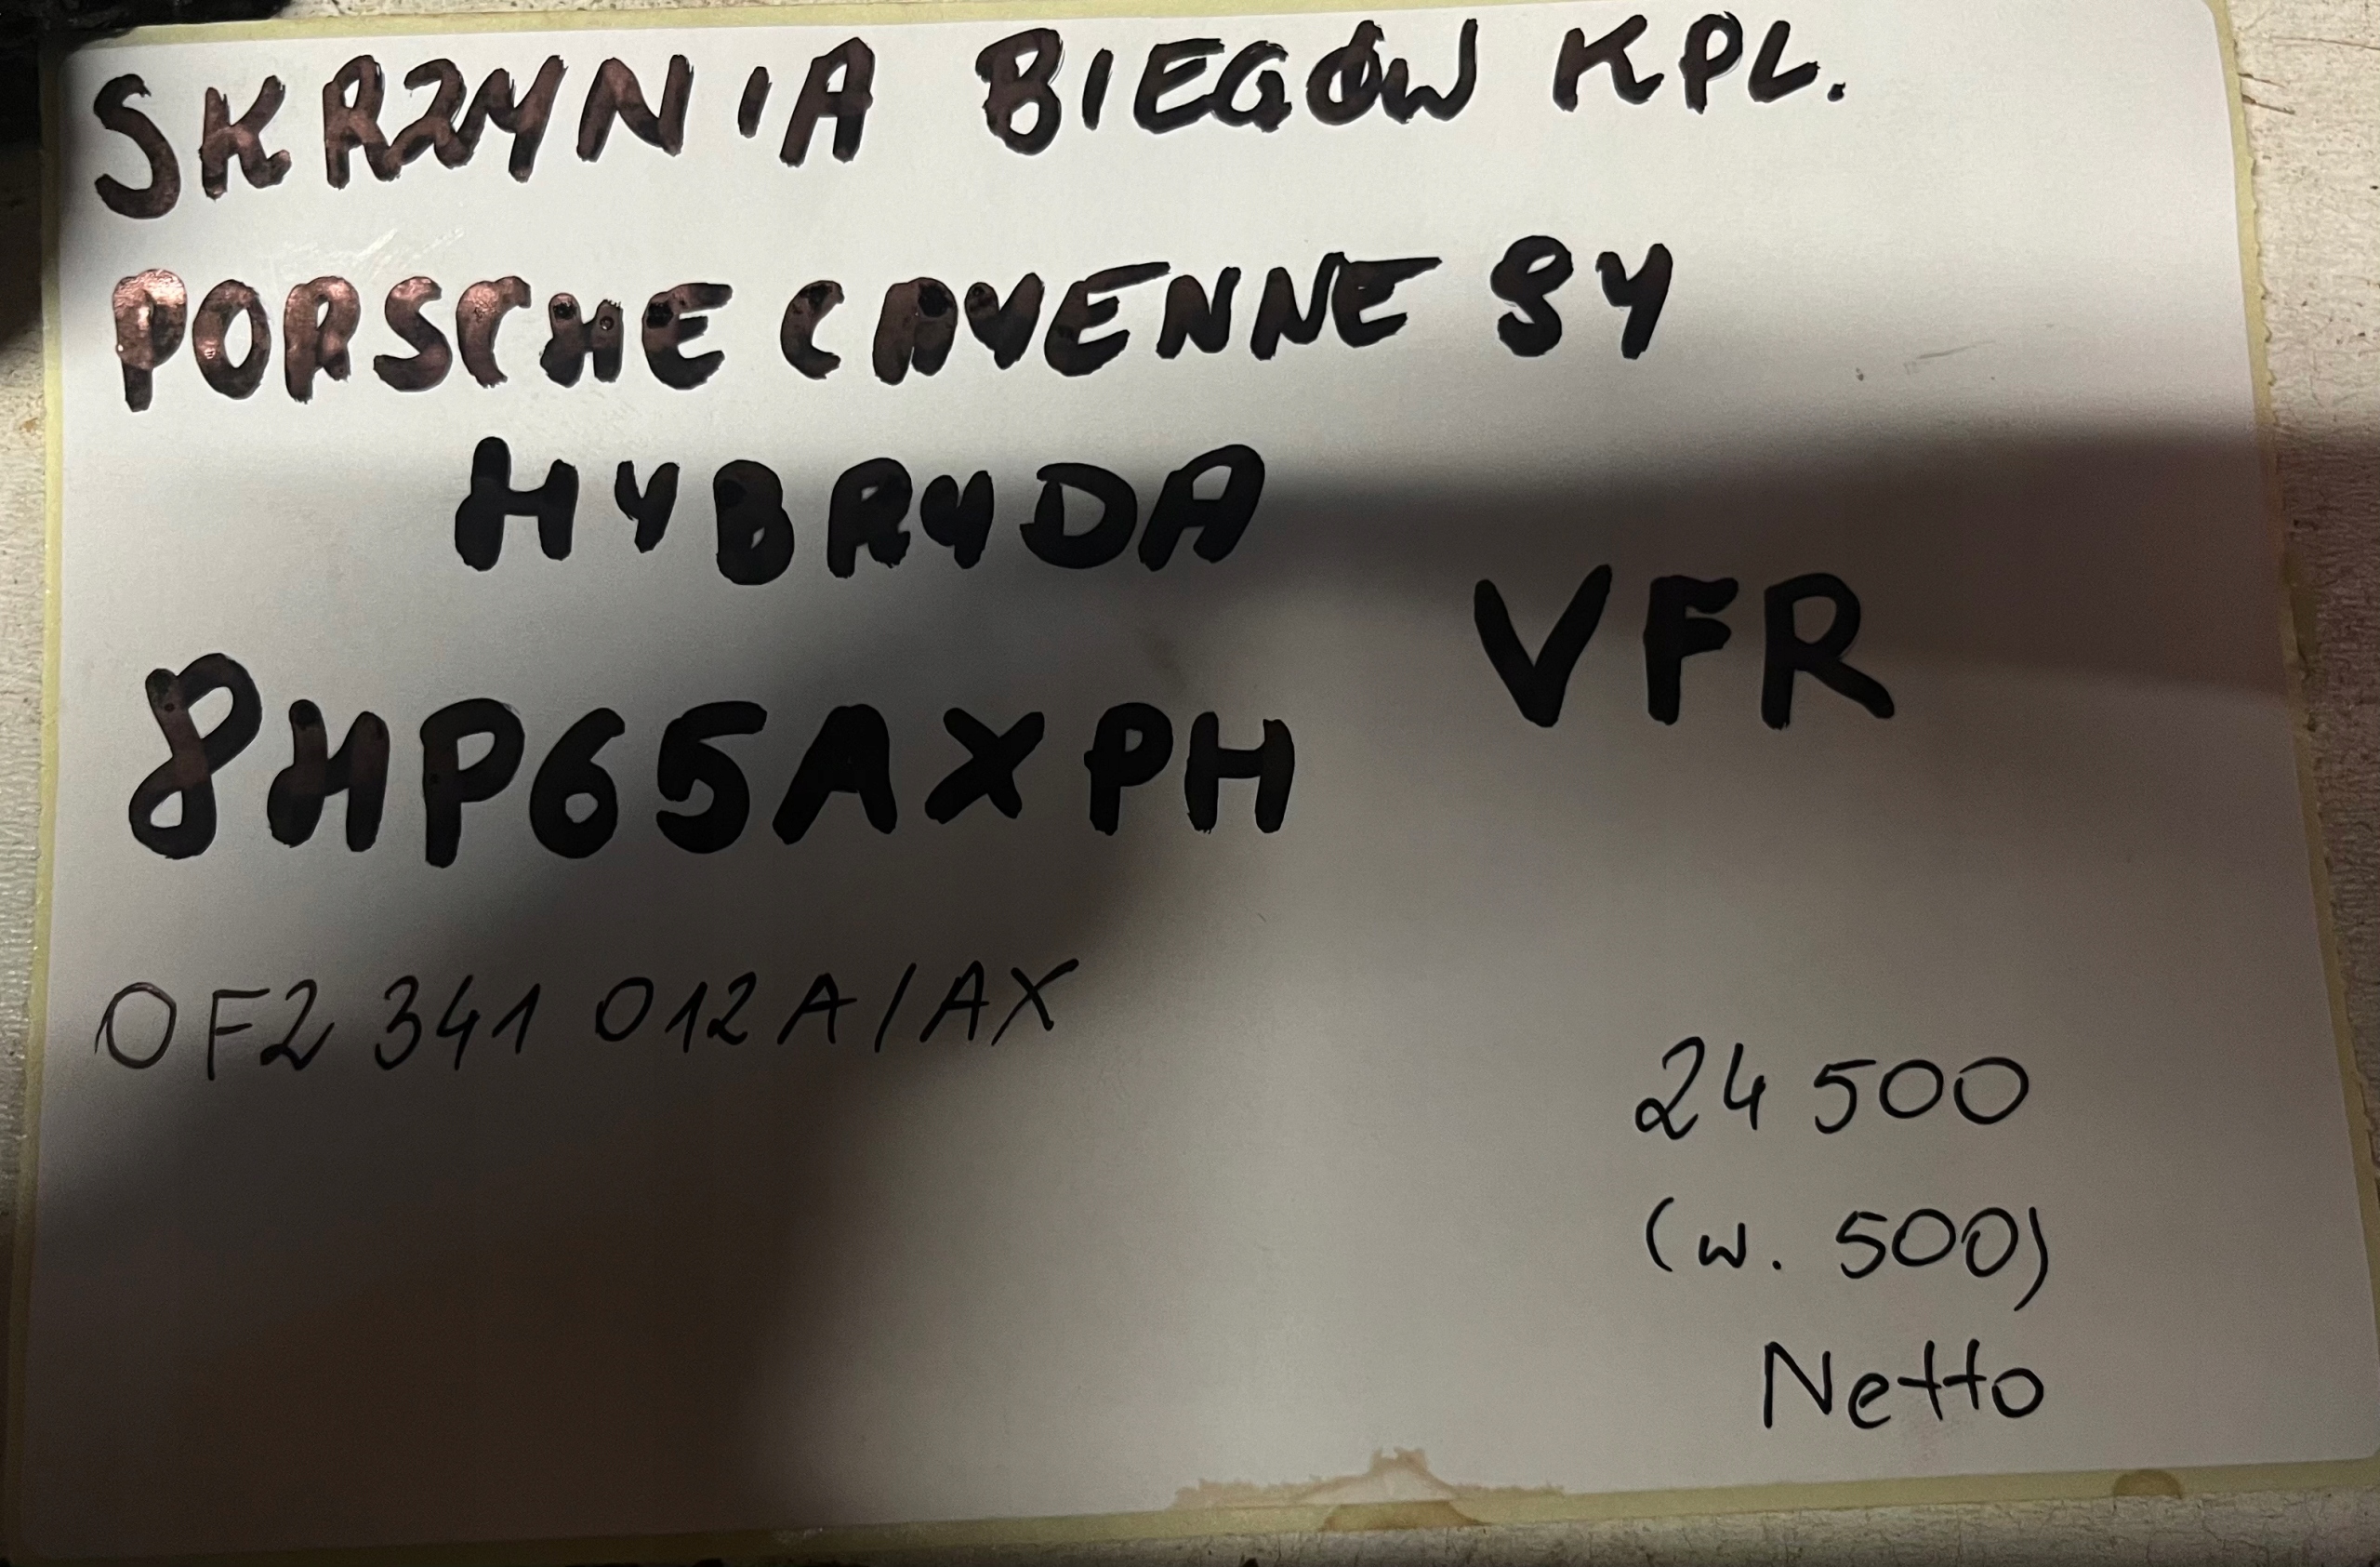 SKRZYNIA BIEGÓW KPL.
PORSCHE CAYENNE 9Y
HYBRYDA
VFR
8HP65AXPH
0F2 341 012A/AX
24 500
(w. 500)
Netto